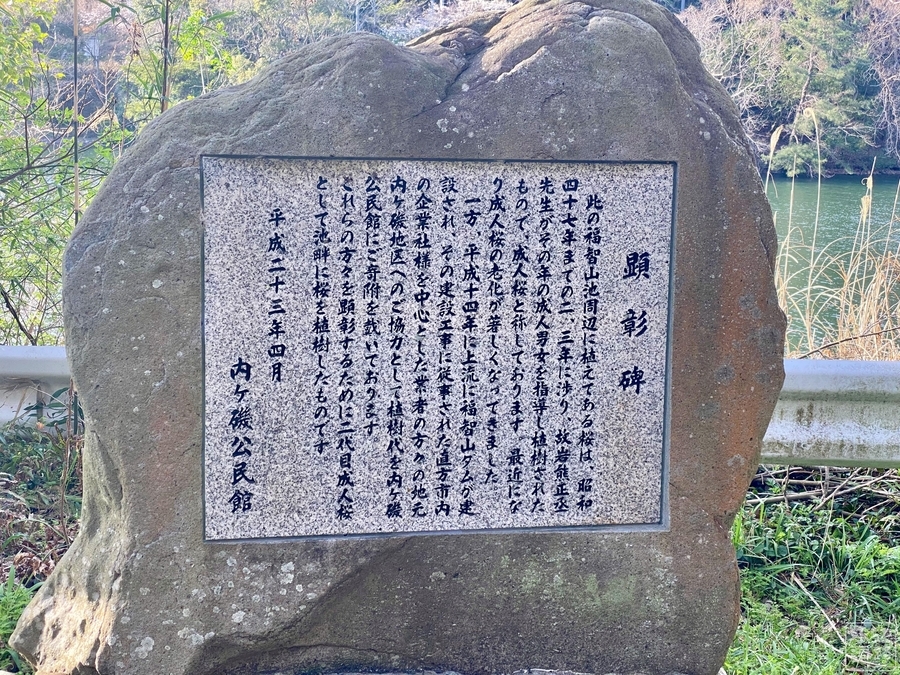 顕彰碑
此の福智山池周辺に植えてある桜は、昭和
四十七年までの二、三年に渉り、故岩熊正丞
先生がその年の成人男女を指導し植樹された
もので、成人桜と称しております。最近にな
り成人桜の老化が著しくなってきました
一方 平成十四年に上流に福智山ダムが建
設され、その建設工事に従事された直方市内
の企業社様を中心とした業者の方々の地元
内ヶ磯地区へのご協力として植樹代を内ヶ磯
公民館にご寄附を戴いております
これらの方々を顕彰するために二代目成人桜
として池畔に桜を植樹したものです
平成二十三年四月
内ヶ磯公民館